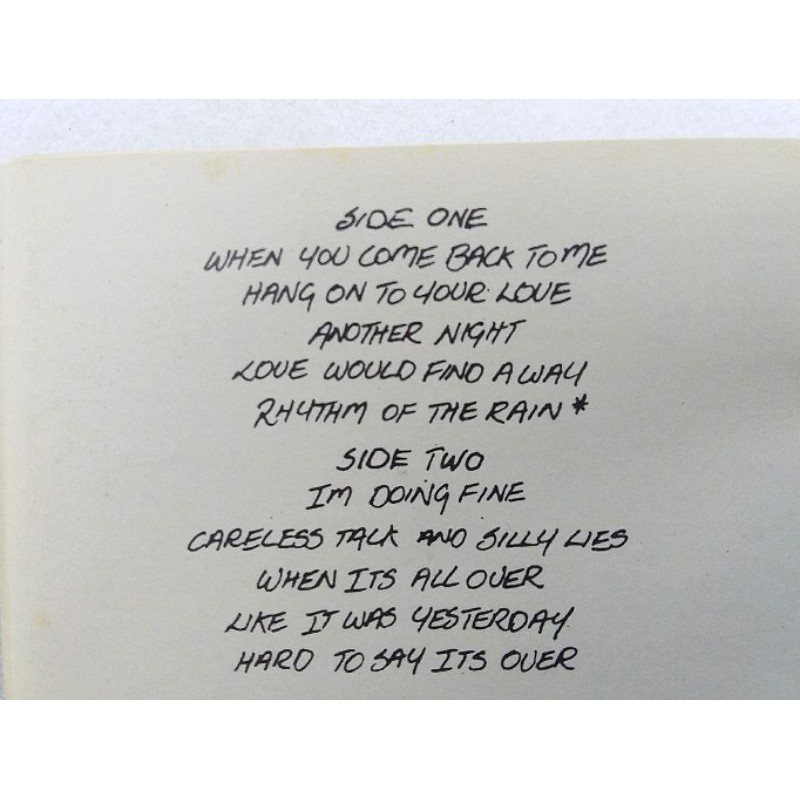 SIDE ONE
WHEN YOU COME BACK TO ME
HANG ON TO YOUR LOVE
ANOTHER NIGHT
LOVE WOULD FIND A WAY
RHYTHM OF THE RAIN *
SIDE TWO
IM DOING FINE
CARELESS TALK AND SILLY LIES
WHEN ITS ALL OVER
LIKE IT WAS YESTERDAY
HARD TO SAY ITS OVER